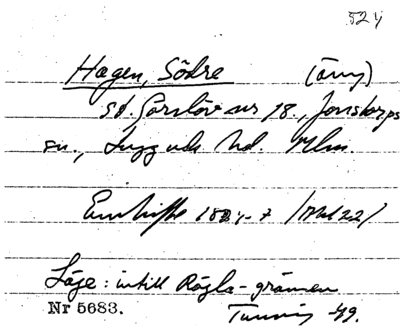 524
Hagen, Södre (äng)
sd. Görslöv nr 18., Jonstorps
sn., Luggude hd. Mlm.
Enskifte 182
Läge: intill Rögla-gränsen
Nr 5683. -49.